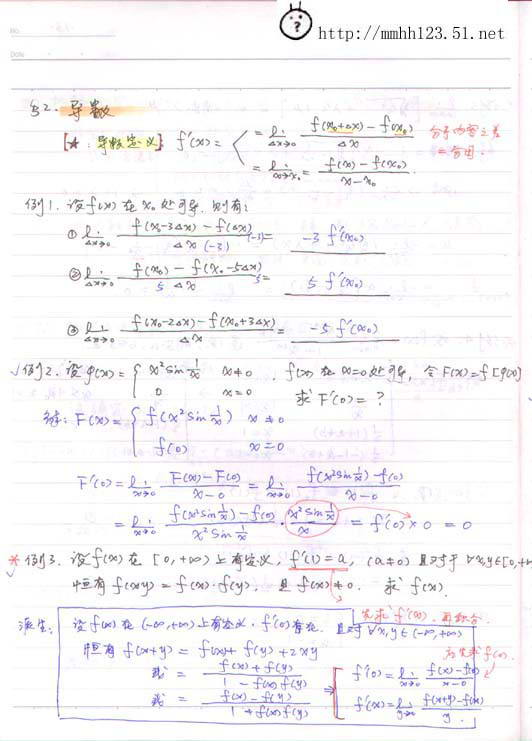 http://mmhh123.51.net
No.
Date
§2. 导数
[★: 导数定义] f'(x) = < = lim Δx→0 f(x₀+Δx) − f(x₀) / Δx 分子内容之差
= lim x→x₀ = f(x) − f(x₀) / x − x₀ = 分母.
例1. 设 f(x) 在 x₀ 处可导, 则有:
① lim Δx→0 f(x₀−3Δx) − f(Δx) / Δx (−3) (−3) = −3 f'(x₀)
② lim Δx→0 f(x₀) − f(x₀−5Δx) / 5 Δx 5 = 5 f'(x₀)
③ lim Δx→0 f(x₀−2Δx) − f(x₀+3Δx) / Δx = −5 f'(x₀)
√ 例2. 设 φ(x) = { x² sin 1/x x≠0 , f(x) 在 x=0 处可导, 令 F(x) = f[φ(x)]
0 x=0 求 F'(0) = ?
解: F(x) = { f(x² sin 1/x) x≠0
f(0) x=0
F'(0) = lim x→0 F(x) − F(0) / x−0 = lim x→0 f(x² sin 1/x) − f(0) / x−0
= lim x→0 f(x² sin 1/x) − f(0) / x² sin 1/x · x² sin 1/x / x = f'(0) × 0 = 0
* 例3. 设 f(x) 在 [0, +∞) 上有定义, f'(1) = a, (a≠0) 且对于 ∀x,y∈[0, +∞
√ 恒有 f(xy) = f(x)·f(y), 且 f(x)≠0. 求 f(x).
先求 f'(x), 再积分.
派生: 设 f(x) 在 (−∞, +∞) 上有定义. f'(0) 存在, 且对 ∀x,y∈(−∞, +∞)
恒有 f(x+y) = f(x) + f(y) + 2xy 应先求 f(0).
或 = f(x) + f(y) / 1 − f(x) f(y) ⇒ { f'(0) = lim x→0 f(x) − f(0) / x−0
或 = f(x) − f(y) / 1 + f(x) f(y) f'(x) = lim y→0 f(x+y) − f(x) / y.